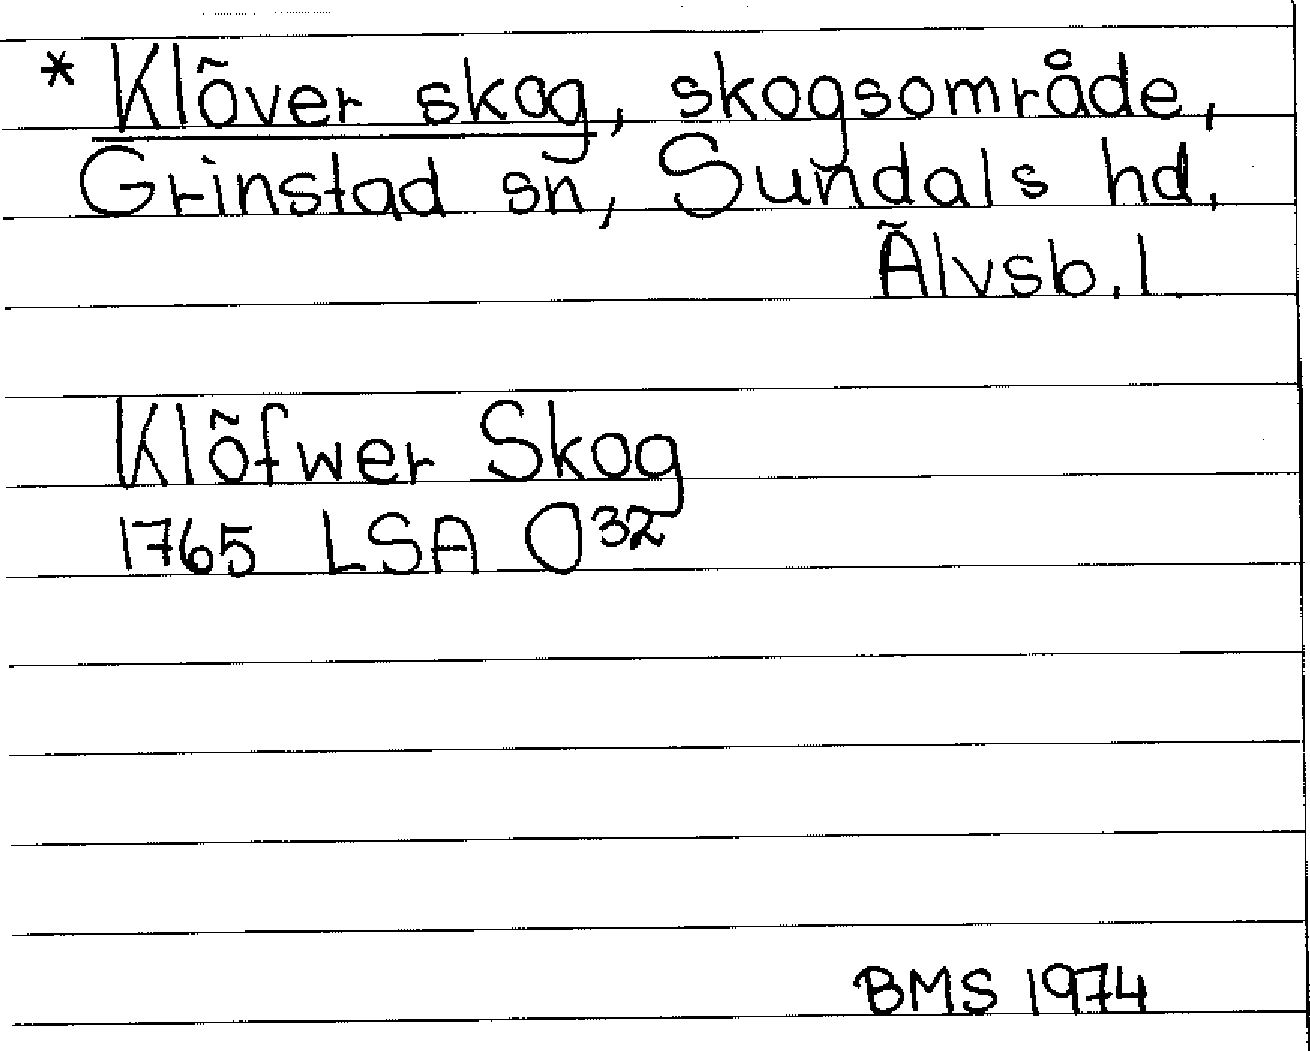 * Klöver skog, skogsområde,
Grinstad sn, Sundals hd,
Älvsb. l
Klöfwer Skog
1765 LSA O³²
BMS 1974